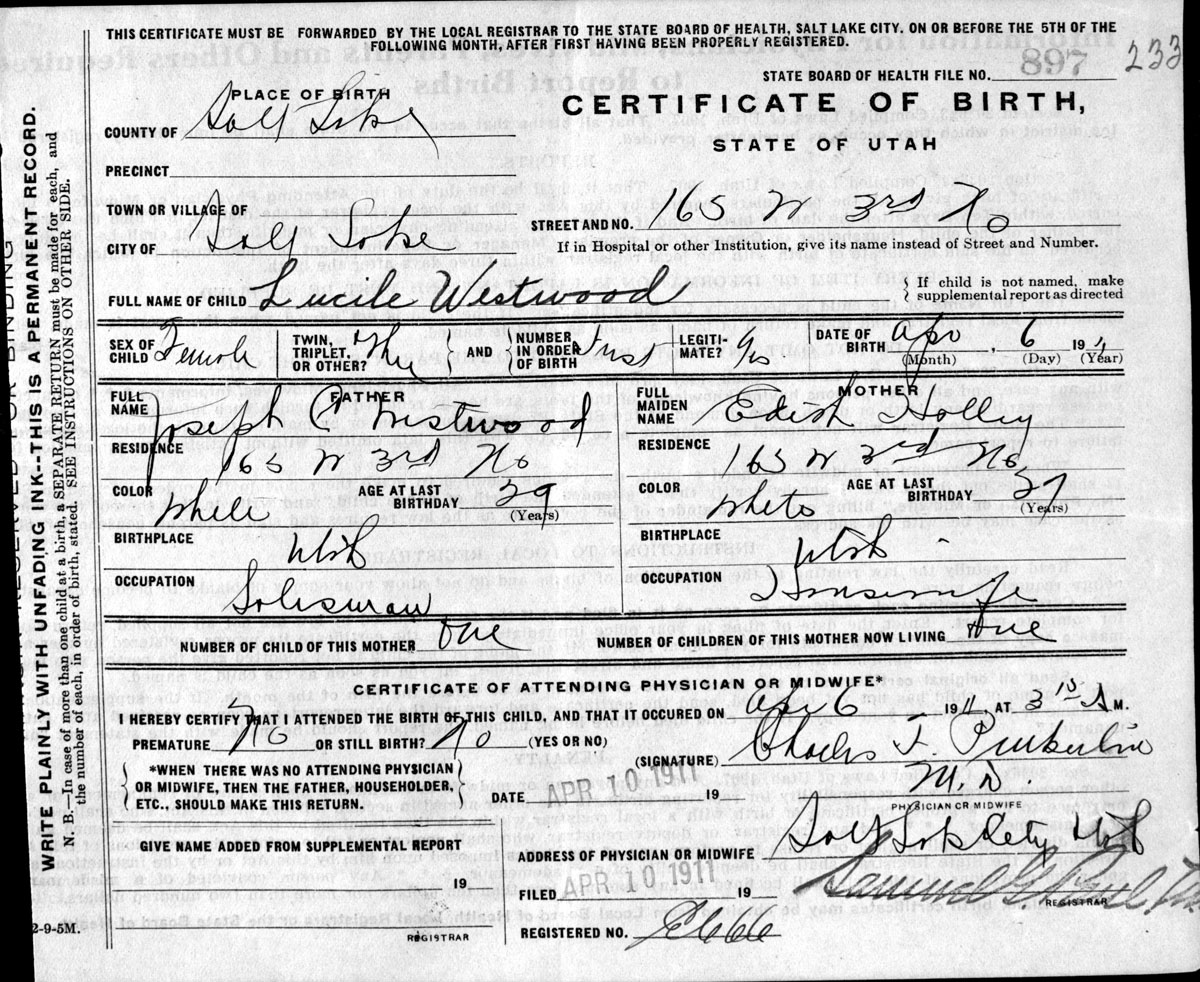 THIS CERTIFICATE MUST BE FORWARDED BY THE LOCAL REGISTRAR TO THE STATE BOARD OF HEALTH, SALT LAKE CITY. ON OR BEFORE THE 5TH OF THE
FOLLOWING MONTH, AFTER FIRST HAVING BEEN PROPERLY REGISTERED.
233
STATE BOARD OF HEALTH FILE NO. 897
PLACE OF BIRTH
CERTIFICATE OF BIRTH,
STATE OF UTAH
COUNTY OF Salt Lake
PRECINCT
TOWN OR VILLAGE OF
CITY OF Salt Lake
STREET AND NO. 165 W 3rd No
If in Hospital or other Institution, give its name instead of Street and Number.
FULL NAME OF CHILD Lucile Westwood
If child is not named, make
supplemental report as directed
SEX OF CHILD Female
TWIN, TRIPLET, OR OTHER?
AND
NUMBER IN ORDER OF BIRTH First
LEGITI-MATE? Yes
DATE OF BIRTH Apr, 6 1911
(Month) (Day) (Year)
FATHER
FULL NAME Joseph C Westwood
RESIDENCE 165 W 3rd No
COLOR White
AGE AT LAST BIRTHDAY 29
(Years)
BIRTHPLACE Utah
OCCUPATION Salesman
MOTHER
FULL MAIDEN NAME Edith Holley
RESIDENCE 165 W 3rd No
COLOR White
AGE AT LAST BIRTHDAY 27
(Years)
BIRTHPLACE Utah
OCCUPATION Housewife
NUMBER OF CHILD OF THIS MOTHER One
NUMBER OF CHILDREN OF THIS MOTHER NOW LIVING One
CERTIFICATE OF ATTENDING PHYSICIAN OR MIDWIFE*
I HEREBY CERTIFY THAT I ATTENDED THE BIRTH OF THIS CHILD, AND THAT IT OCCURRED ON Apr 6 1911, AT 3 15 A M.
PREMATURE No OR STILL BIRTH? No (YES OR NO)
(SIGNATURE) Charles F. M.D.
PHYSICIAN OR MIDWIFE
*WHEN THERE WAS NO ATTENDING PHYSICIAN
OR MIDWIFE, THEN THE FATHER, HOUSEHOLDER,
ETC., SHOULD MAKE THIS RETURN.
DATE APR 10 1911 19
GIVE NAME ADDED FROM SUPPLEMENTAL REPORT
19
REGISTRAR
ADDRESS OF PHYSICIAN OR MIDWIFE Salt Lake City Utah
FILED APR 10 1911 19
REGISTRAR
REGISTERED NO.
2-9-5M.
WRITE PLAINLY WITH UNFADING INK--THIS IS A PERMANENT RECORD.
N. B.—In case of more than one child at a birth, a SEPARATE RETURN must be made for each, and
the number of each, in order of birth, stated. SEE INSTRUCTIONS ON OTHER SIDE.